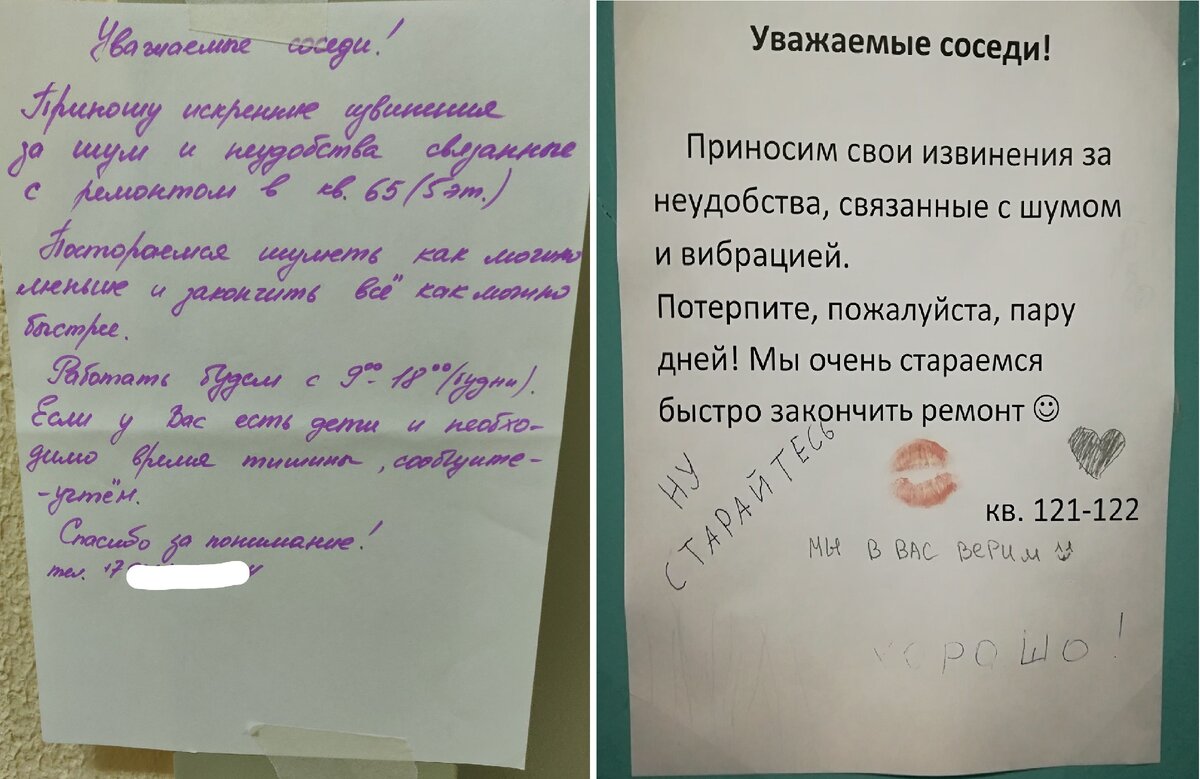 Уважаемые соседи!
Приношу искренние извинения
за шум и неудобства связанные
с ремонтом в кв. 65 (5 эт.)
Постораемся шуметь как можно
меньше и закончить всё как можно
быстрее.
Работать будем с 9⁰⁰-18⁰⁰ (будни).
Если у Вас есть дети и необхо-
димо время тишины, сообщите-
-учтём.
Спасибо за понимание!
тел. +7
Уважаемые соседи!
Приносим свои извинения за
неудобства, связанные с шумом
и вибрацией.
Потерпите, пожалуйста, пару
дней! Мы очень стараемся
быстро закончить ремонт ☺
НУ
СТАРАЙТЕСЬ
кв. 121-122
МЫ В ВАС ВЕРИМ
ХОРОШО!